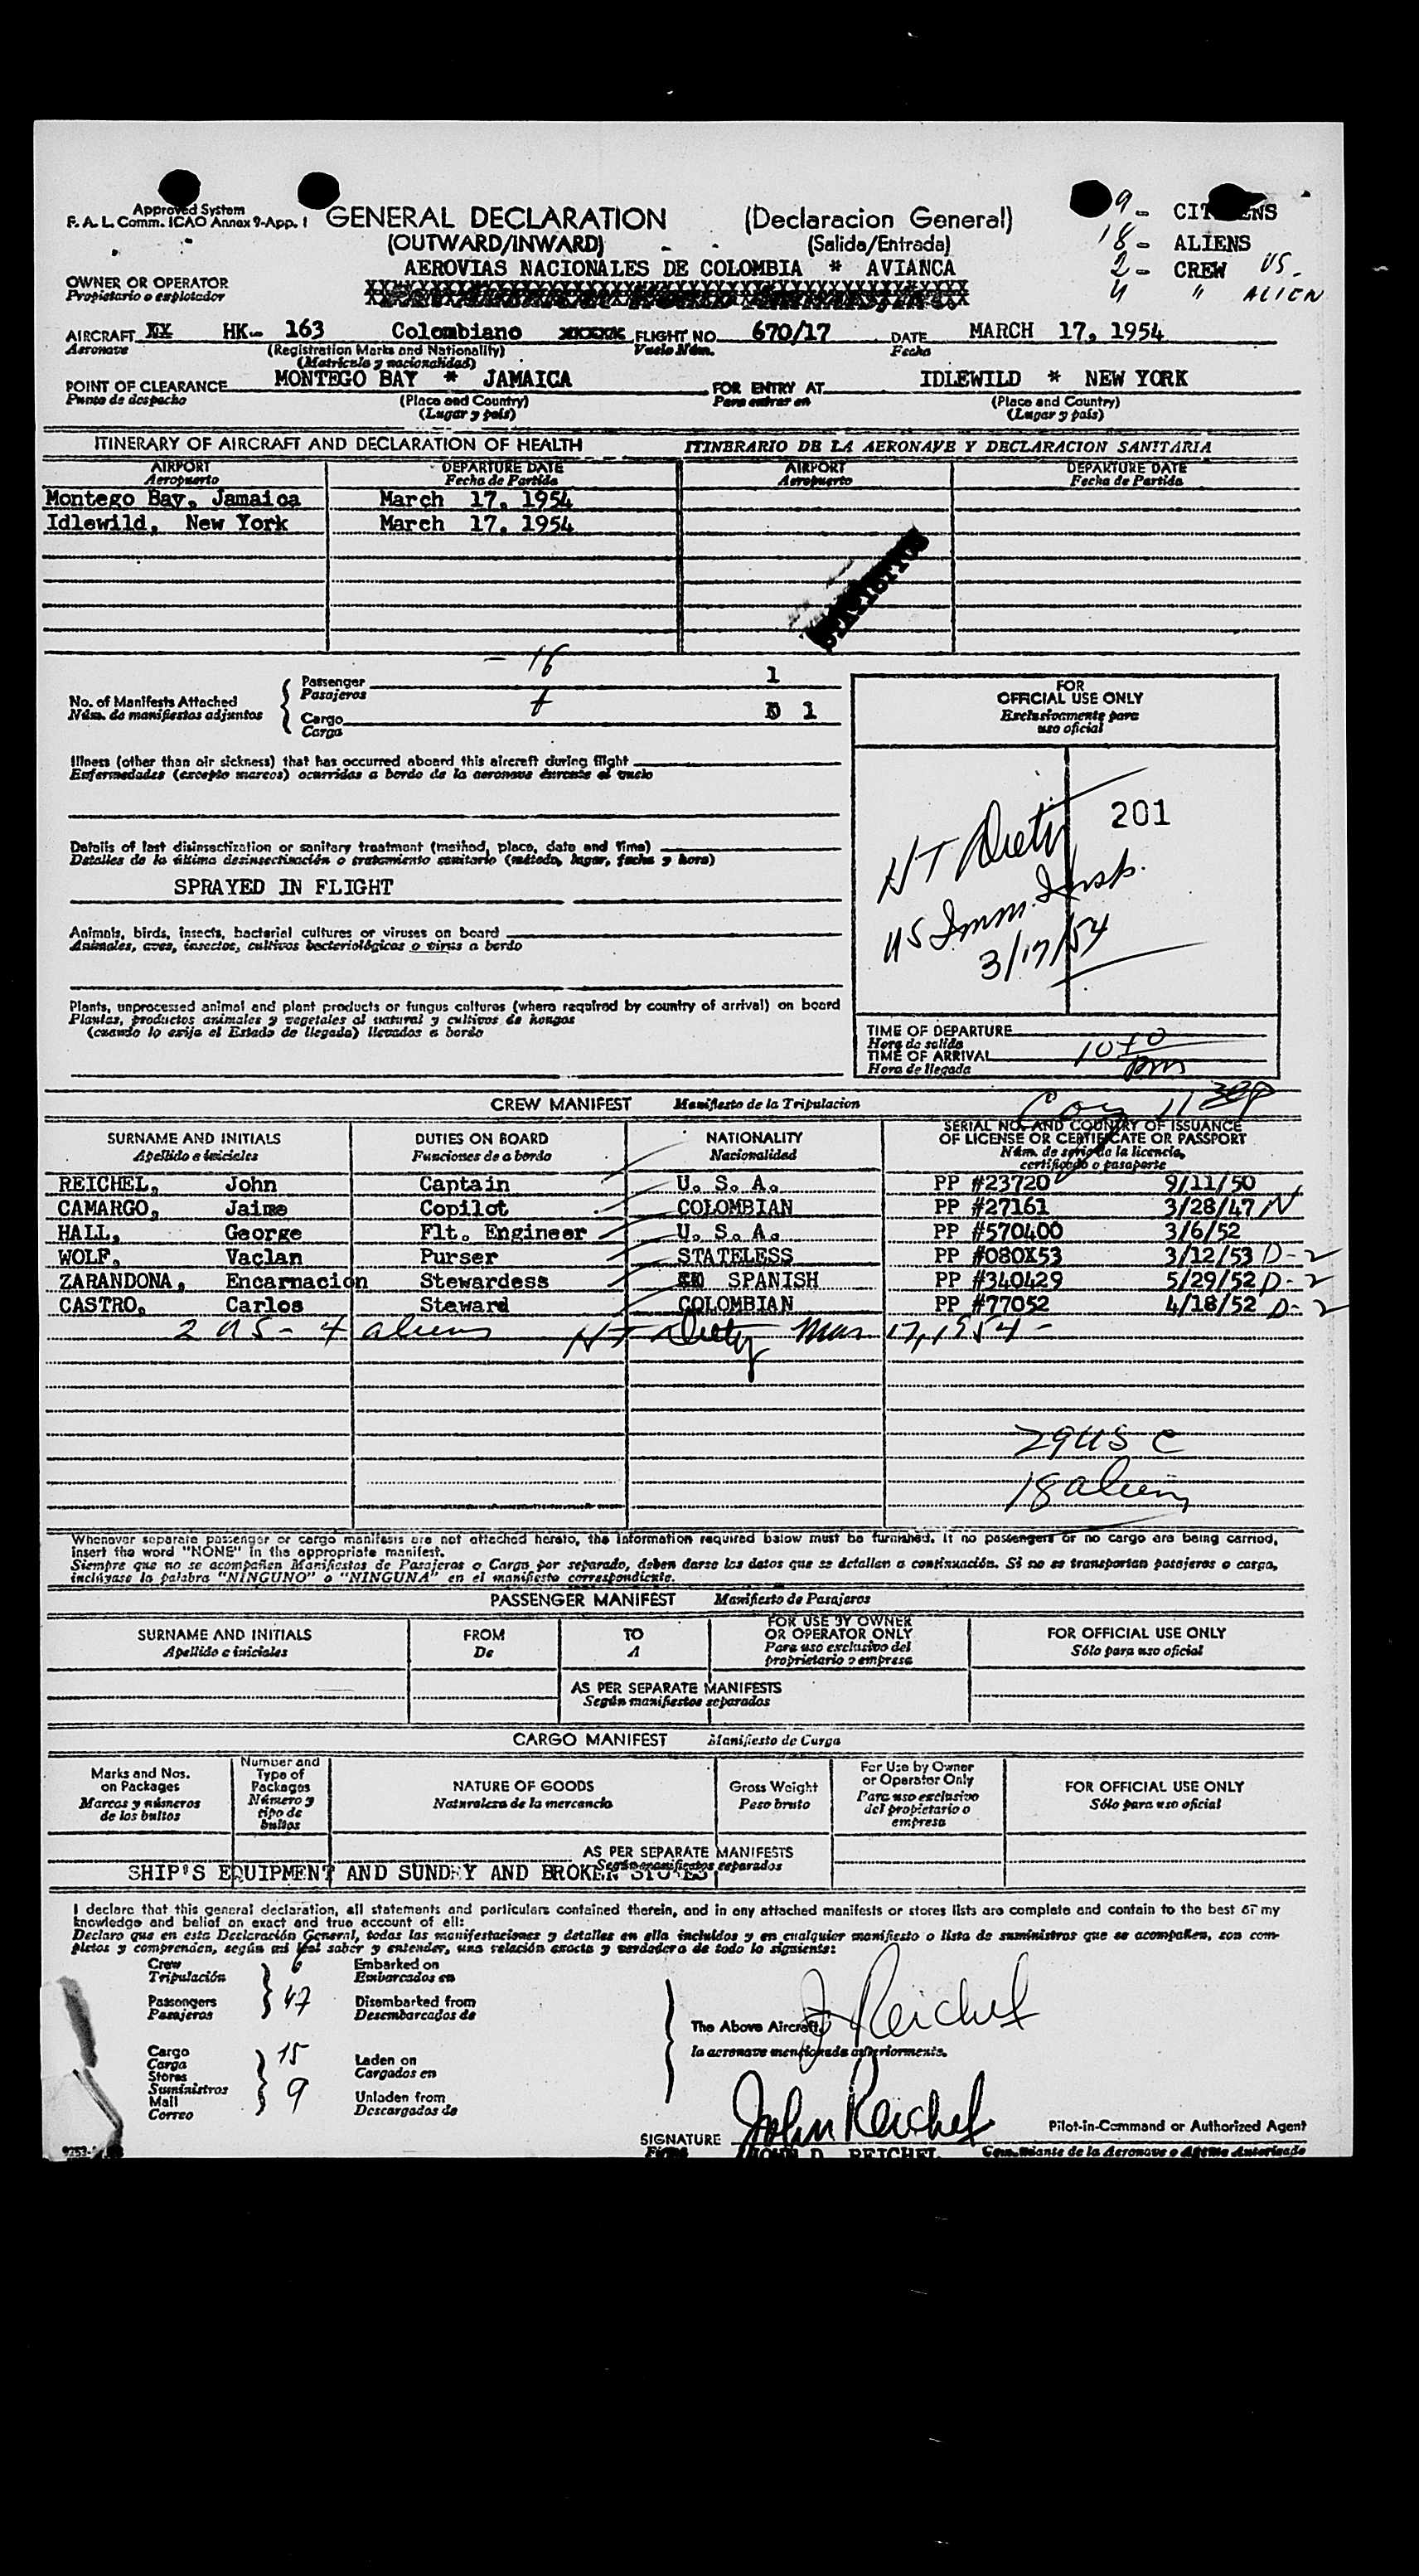 Approved System
F. A. L. Comm. ICAO Annex 9-App. 1
GENERAL DECLARATION (Declaracion General)
(OUTWARD/INWARD) (Salida/Entrada)
9 - CITIZENS
18 - ALIENS
2 - CREW US.
4 " ALIEN
OWNER OR OPERATOR
Propietario o explotador
AEROVIAS NACIONALES DE COLOMBIA * AVIANCA
AIRCRAFT HK- 163 Colombiano FLIGHT NO. 670/17 DATE MARCH 17, 1954
Aeronave (Registration Marks and Nationality) Vuelo Núm. Fecha
(Matrícula y nacionalidad)
POINT OF CLEARANCE MONTEGO BAY * JAMAICA FOR ENTRY AT IDLEWILD * NEW YORK
Punto de despacho (Place and Country) Para entrar en (Place and Country)
(Lugar y país) (Lugar y país)
ITINERARY OF AIRCRAFT AND DECLARATION OF HEALTH ITINERARIO DE LA AERONAVE Y DECLARACION SANITARIA
AIRPORT DEPARTURE DATE AIRPORT DEPARTURE DATE
Aeropuerto Fecha de Partida Aeropuerto Fecha de Partida
Montego Bay, Jamaica March 17, 1954
Idlewild, New York March 17, 1954
STATISTICS
No. of Manifests Attached
Núm. de manifiestos adjuntos
Passenger 16 1
Pasajeros
Cargo 1
Carga
Illness (other than air sickness) that has occurred aboard this aircraft during flight
Enfermedades (excepto mareos) ocurridas a bordo de la aeronave durante el vuelo
Details of last disinsectization or sanitary treatment (method, place, date and time)
Detalles de la última desinsectización o tratamiento sanitario (método, lugar, fecha y hora)
SPRAYED IN FLIGHT
Animals, birds, insects, bacterial cultures or viruses on board
Animales, aves, insectos, cultivos bacteriológicos o virus a bordo
Plants, unprocessed animal and plant products or fungus cultures (where required by country of arrival) on board
Plantas, productos animales y vegetales al natural y cultivos de hongos
(cuando lo exija el Estado de llegada) llevados a bordo
FOR
OFFICIAL USE ONLY
Exclusivamente para
uso oficial
201
US Imm. Insp.
3/17/54
TIME OF DEPARTURE
Hora de salida
TIME OF ARRIVAL 1010
Hora de llegada pm
CREW MANIFEST Manifiesto de la Tripulacion
SURNAME AND INITIALS DUTIES ON BOARD NATIONALITY SERIAL NO. AND COUNTRY OF ISSUANCE
OF LICENSE OR CERTIFICATE OR PASSPORT
Apellido e iniciales Funciones de a bordo Nacionalidad Núm. de serie de la licencia,
certificado o pasaporte
REICHEL, John Captain U. S. A. PP #23720 9/11/50
CAMARGO, Jaime Copilot COLOMBIAN PP #27161 3/28/47 N
HALL, George Flt. Engineer U. S. A. PP #570400 3/6/52
WOLF, Vaclan Purser STATELESS PP #080X53 3/12/53 D-2
ZARANDONA, Encarnacion Stewardess SPANISH PP #340429 5/29/52 D-2
CASTRO, Carlos Steward COLOMBIAN PP #77052 4/18/52 D-2
2 US - 4 aliens Mar 17, 1954 -
29 US C
18 aliens
Whenever separate passenger or cargo manifests are not attached hereto, the information required below must be furnished. If no passengers or no cargo are being carried,
insert the word "NONE" in the appropriate manifest.
Siempre que no se acompañen Manifiestos de Pasajeros o Carga por separado, deben darse los datos que se detallan a continuación. Si no se transportan pasajeros o carga,
inclúyase la palabra "NINGUNO" o "NINGUNA" en el manifiesto correspondiente.
PASSENGER MANIFEST Manifiesto de Pasajeros
SURNAME AND INITIALS FROM TO FOR USE BY OWNER
OR OPERATOR ONLY FOR OFFICIAL USE ONLY
Apellido e iniciales De A Para uso exclusivo del
propietario o empresa Sólo para uso oficial
AS PER SEPARATE MANIFESTS
Según manifiestos separados
CARGO MANIFEST Manifiesto de Carga
Marks and Nos.
on Packages
Marcas y números
de los bultos
Number and
Type of
Packages
Número y
tipo de
bultos
NATURE OF GOODS
Naturaleza de la mercancía
Gross Weight
Peso bruto
For Use by Owner
or Operator Only
Para uso exclusivo
del propietario o
empresa
FOR OFFICIAL USE ONLY
Sólo para uso oficial
AS PER SEPARATE MANIFESTS
Según manifiestos separados
SHIP'S EQUIPMENT AND SUNDRY AND BROKEN STORES
I declare that this general declaration, all statements and particulars contained therein, and in any attached manifests or stores lists are complete and contain to the best of my
knowledge and belief an exact and true account of all:
Declaro que en esta Declaración General, todas las manifestaciones y detalles en ella incluídos y en cualquier manifiesto o lista de suministros que se acompañen, son com-
pletos y comprenden, según mi leal saber y entender, una relación exacta y verdadera de todo lo siguiente:
Crew 6 Embarked on
Tripulación Embarcados en
Passengers 47 Disembarked from
Pasajeros Desembarcados de
Cargo 15
Carga
Stores
Suministros 9
Mail
Correo
Laden on
Cargados en
Unladen from
Descargados de
The Above Aircraft. J Reichel
la aeronave mencionada anteriormente.
SIGNATURE John Reichel Pilot-in-Command or Authorized Agent
Firma JOHN D. REICHEL Comandante de la Aeronave o Agente Autorizado